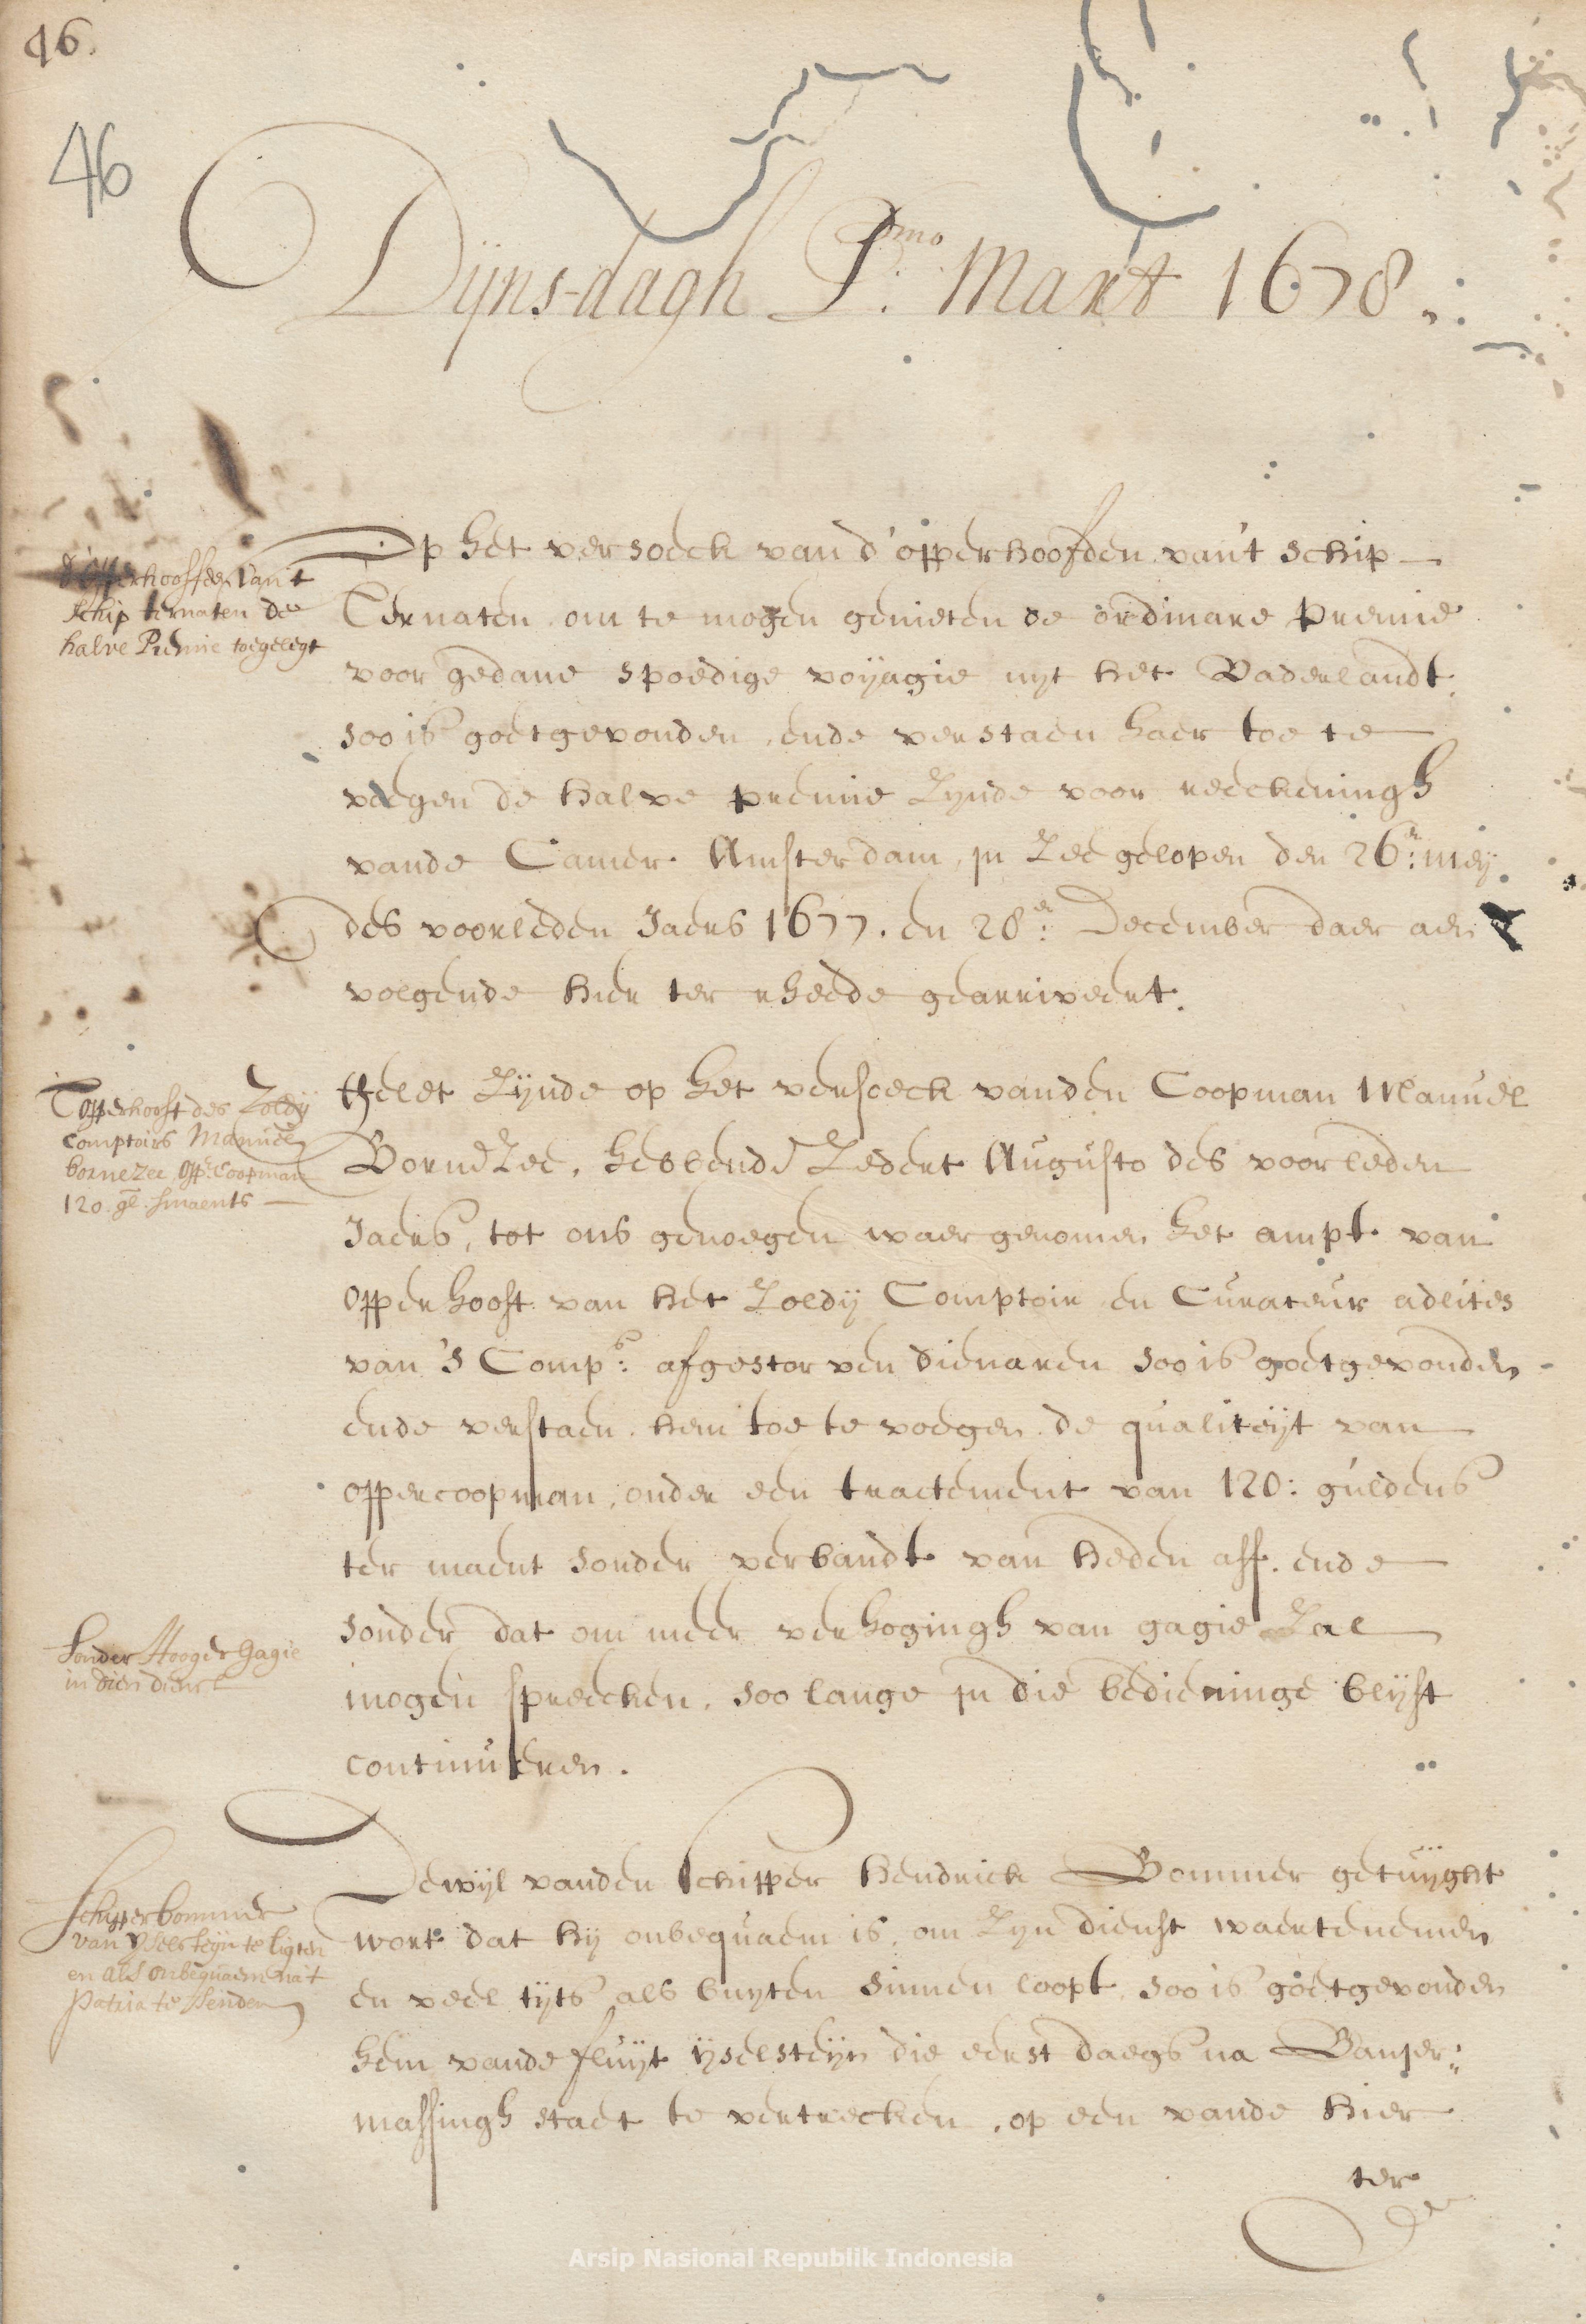 46.
46
Dijns-dagh P.mo Mart 1678.
d'opperhooffden van 't
schip ternaten de
halve Premie toegelegt
Op het versoeck van d'opperhoofden van't schip
Ternaten om te mogen genieten de ordinare premie
voor gedane spoedige voyagie uyt het Vaderlandt
soo is goetgevonden ende verstaen haer toe te
voegen de halve premie zynde voor reeckeningh
vande Camer Amsterdam, in Zee gelopen den 26:n meij
des voorleden Jaers 1677. en 28:n December daer aen
volgende hier ter rheede gearriveert.
T opperhooft des Zoldij
comptoirs Manuel
bornezee opp:r coopman
120. gl. smaents
sonder Hooger Gagie
in dien dienst
Helet zijnde op het versoeck vanden Coopman Manuel
Bornezee, hebbende zedert Augusto des voorleden
Jaers, tot ons genoegen waergenomen het ampt van
opperhooft van het Zoldij Comptoir en Curateur adlites
van 's Comp:s afgestorven dienaren soo is goetgevonden
ende verstaen hem toe te voegen de qualiteijt van
oppercoopman, onder een tractement van 120: guldens
ter maent sonder verbandt van heden aff ende
sonder dat om meer verhogingh van gagie zal
mogen spreecken, soo lange in die bedieninge blijft
continueren.
schipper bommer
van Yselsteijn te ligten
en als onbequaem na 't
patria te senden
Dewijl vanden schipper Hendrick Bommer getuijght
wort dat hij onbequaem is, om zyn dienst waertenemen
en veel tijts als buyten sinnen loopt, soo is goetgevonden
hem vande fluijt ijselsteijn die eerst daegs na Banjer:
massingh staet te vertrecken, op een vande hier
ter
Arsip Nasional Republik Indonesia